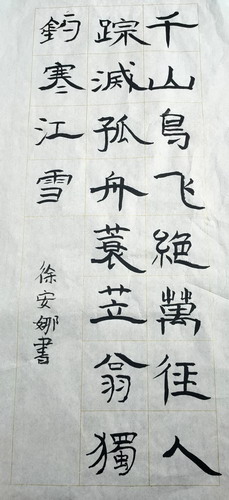 千山鳥飞絶萬径人
踪滅孤舟蓑苙翁獨
釣寒江雪
徐安娜書